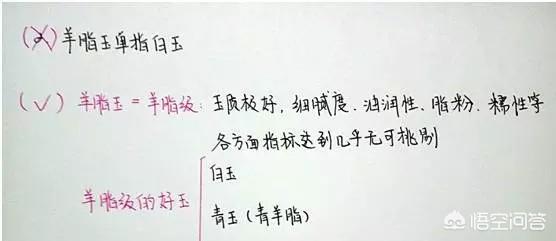 (×) 羊脂玉单指白玉
(√) 羊脂玉=羊脂级: 玉质极好, 细腻度、油润性、脂粉、糯性等
各方面指标达到几乎无可挑剔
羊脂级的好玉
白玉
青玉(青羊脂)
悟空问答